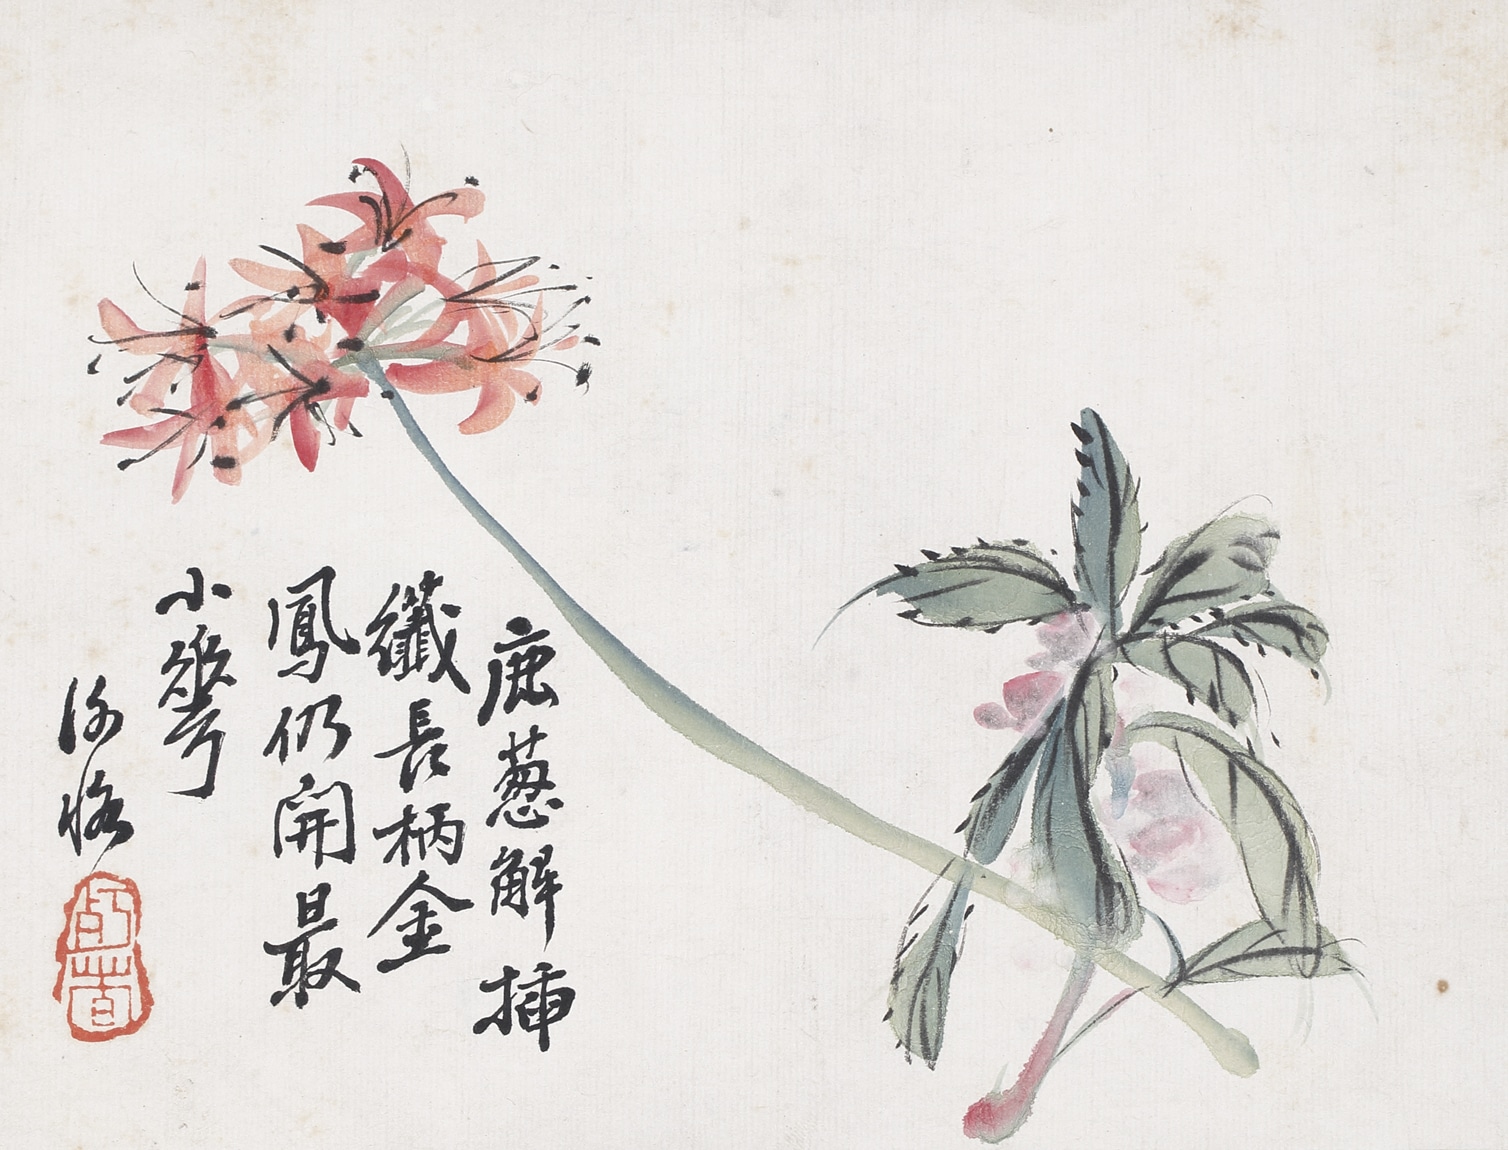 鹿葱解插
纖長柄金
鳳仍開最
小華
衡恪